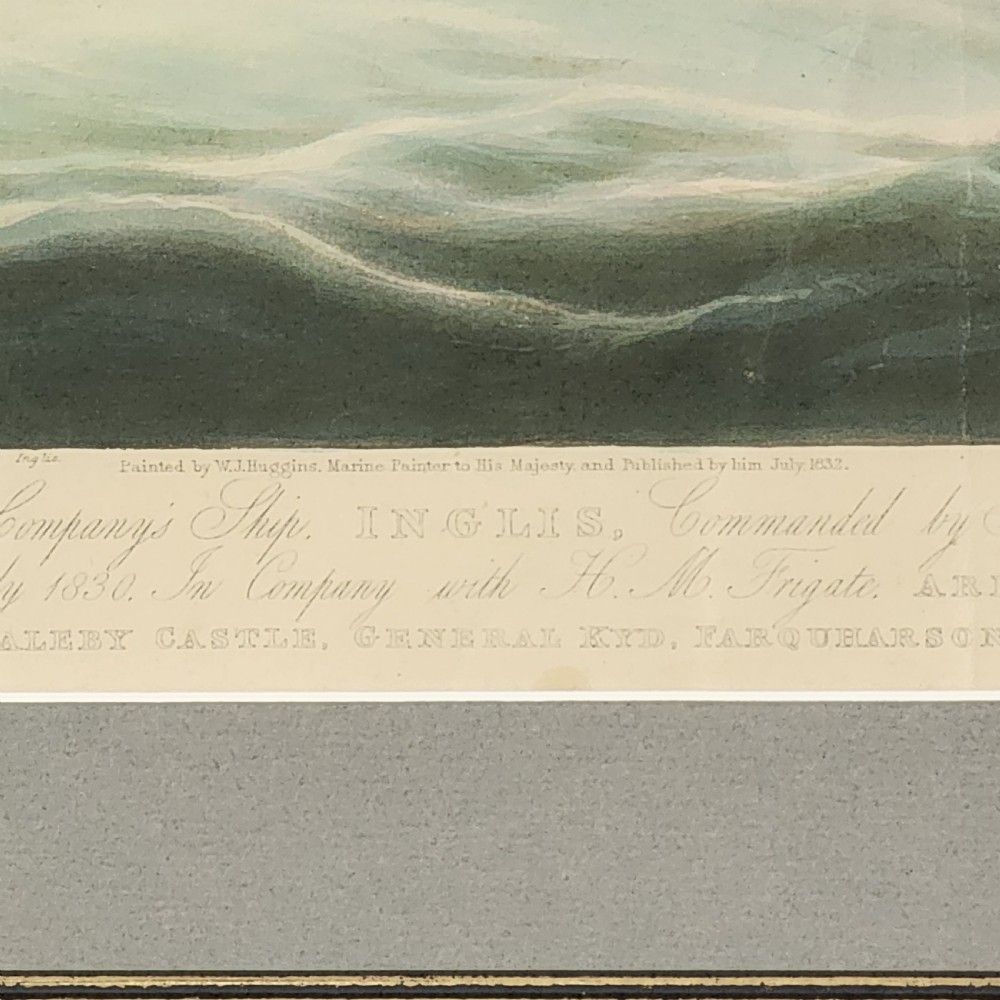 Inglis.
Painted by W.J.Huggins. Marine Painter to His Majesty, and Published by him July, 1832.
Company's Ship. INGLIS, Commanded by
1830. In Company with H. M. Frigate.
CASTLE, GENERAL KYD, FARQUHARSON